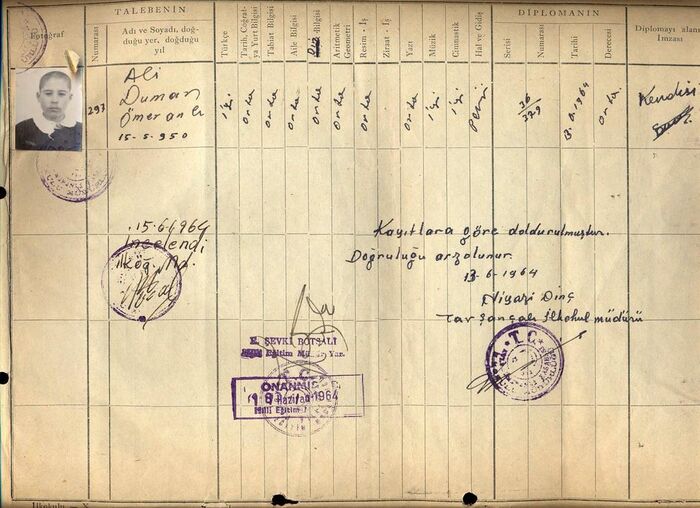 TALEBENİN
DİPLOMANIN
Fotoğraf
Numarası
Adı ve Soyadı, doğ-
duğu yer, doğduğu
yıl
Türkçe
Tarih, Coğraf-
ya Yurt Bilgisi
Tabiat Bilgisi
Aile Bilgisi
Bilgisi
Aritmetik
Geometri
Resim - İş
Ziraat - İş
Yazı
Müzik
Cimnastik
Hal ve Gidiş
Serisi
Numarası
Tarihi
Derecesi
Diplomayı alanın
İmzası
293
Ali
Duman
Ömeranlı
15-5-950
iyi
orta
orta
orta
orta
orta
orta
orta
orta
iyi
iyi
Pekiyi
36
329
3.6.1964
orta
Kendisi
15.6.1964
İncelendi
İlköğ. Md.
Kayıtlara göre doldurulmuştur.
Doğruluğu arzolunur.
13-6-1964
Niyazi Dinç
Tavşançalı İlkokul müdürü
E. ŞEVKİ BOTSALI
Eğitim Müdür Yar.
ONANMIŞ
18 Haziran 1964
Milli Eğitim
T.C.